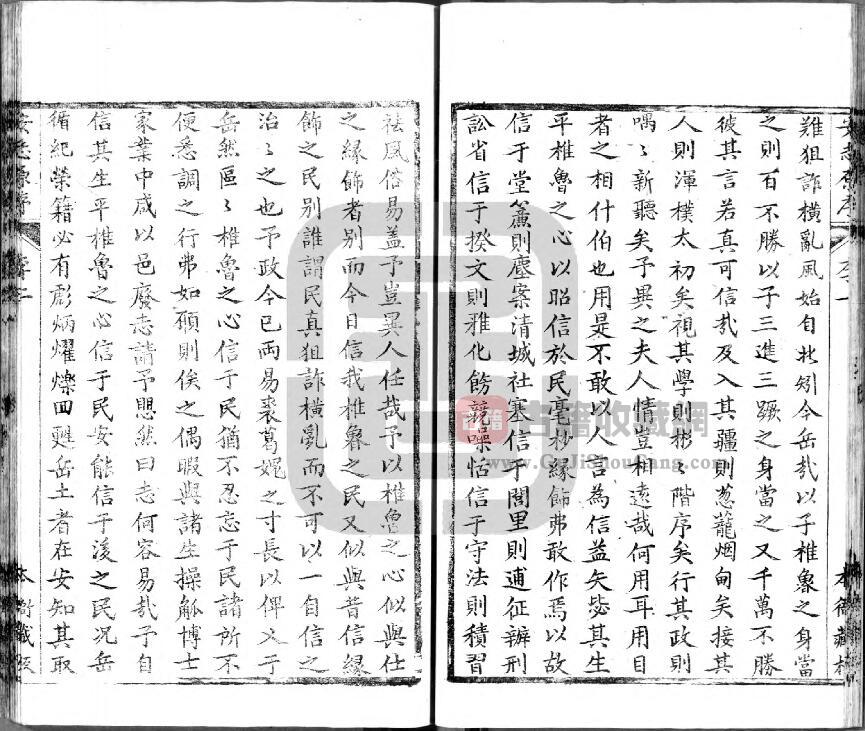 難狙詐橫亂風始自北矧今岳哉以子椎魯之身當
之則百不勝以子三進三蹶之身當之又千萬不勝
彼其言若真可信哉及入其疆則蔥蘢烟甸矣接其
人則渾樸太初矣視其學則彬〻階序矣行其政則
喁〻新聽矣予異之夫人情豈相遠哉何用耳用目
者之相什伯也用是不敢以人言為信益矢毖其生
平椎魯之心以昭信於民毫杪緣飾弗敢作焉以故
信于堂簾則塵案清城社塞信于閭里則逋征辦刑
訟省信于揆文則雅化飭競噪恬信于守法則積習
祛風俗易蓋予豈異人任哉予以椎魯之心似與仕
之緣飾者別而今日信我椎魯之民又似與昔信緣
飾之民別誰謂民真狙詐橫亂而不可以一自信之
治〻之也予政今已兩易裘葛娓之寸長以俾乂于
岳然區〻椎魯之心信于民猶不忍忘于民諸所不
便悉調之行弗如願則俟之偶暇與諸生操觚博士
家業中咸以邑廢志請予愳然曰志何容易哉予自
信其生平椎魯之心信于民安能信于後之民況岳
循紀榮籍必有彪炳燿爍回甦岳土者在安知其取
安志原序
序二
本衙藏板
古籍收藏網
www.GuJiShouCang.com